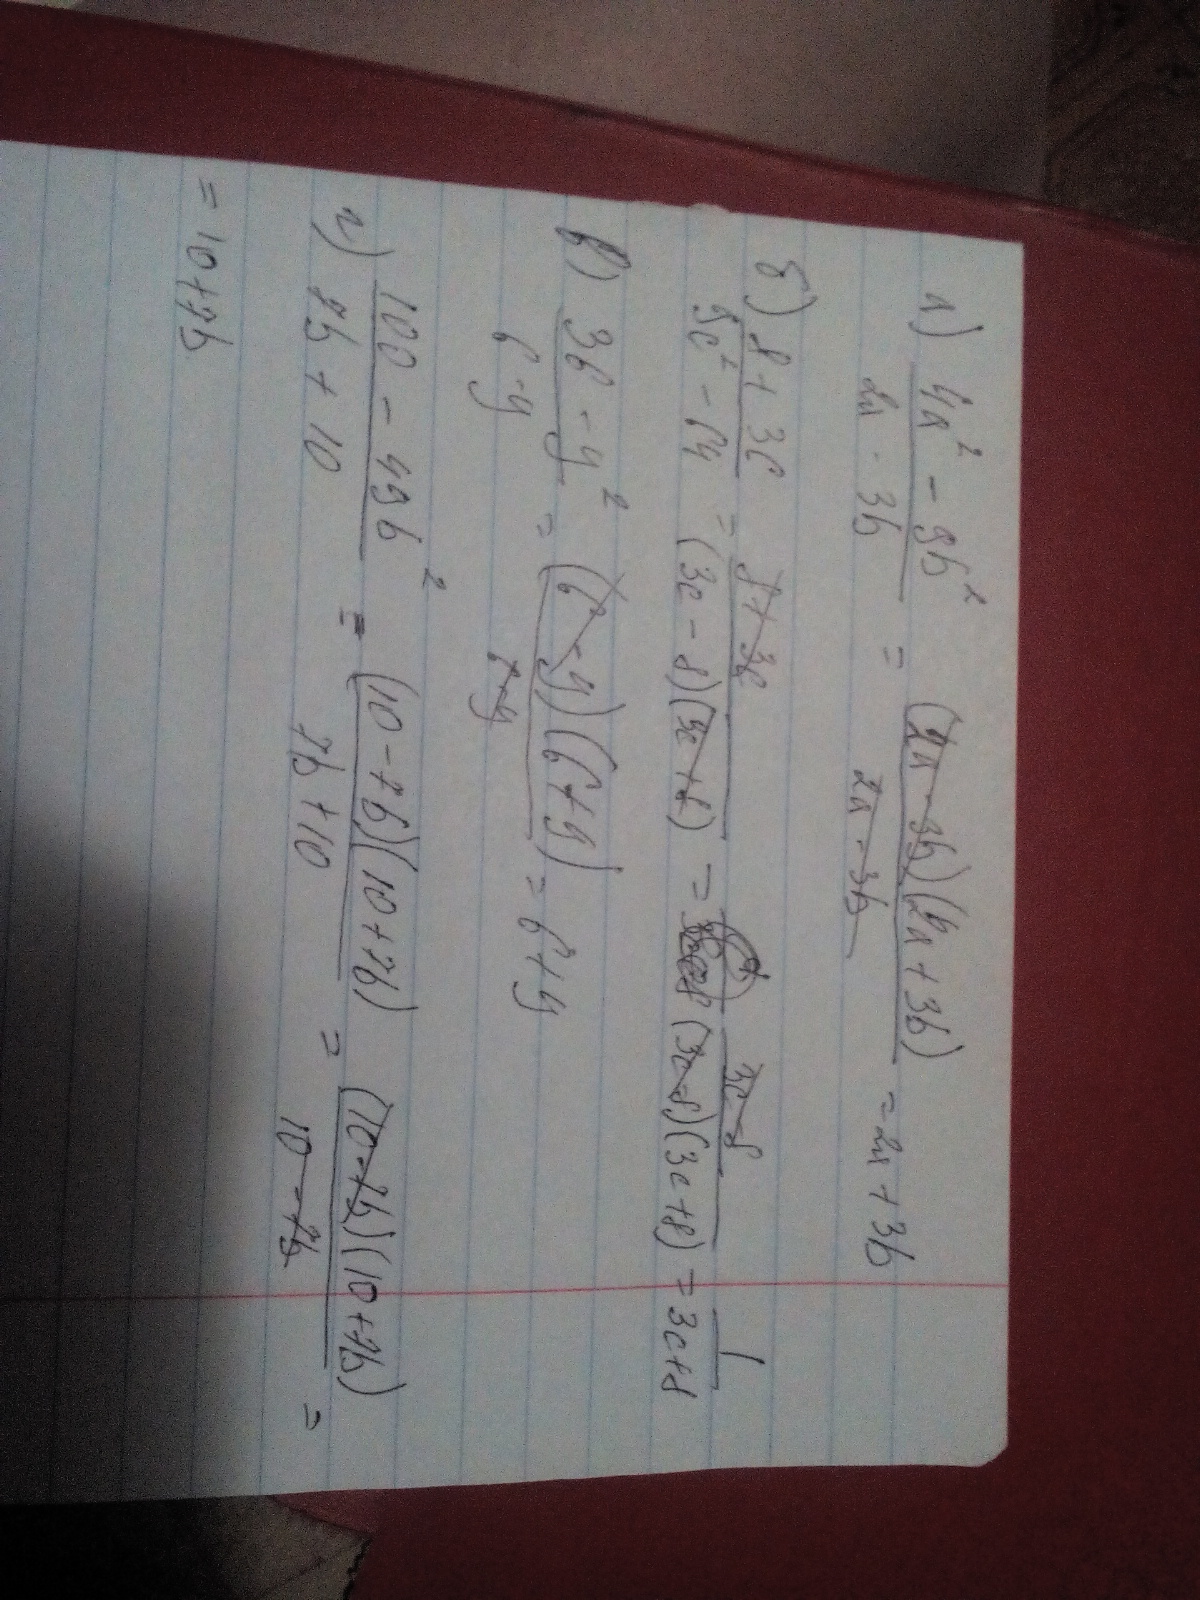 а) 4a² - 9b² / 2a - 3b = (2a - 3b)(2a + 3b) / 2a - 3b = 2a + 3b
б) 8 + 3c / 9c² - 64 = 8 + 3c / (3c - 8)(3c + 8) = 3c - 8 / (3c - 8)(3c + 8) = 1 / 3c + 8
в) 36 - y² / 6 - y = (6 - y)(6 + y) / 6 - y = 6 + y
г) 100 - 49b² / 7b + 10 = (10 - 7b)(10 + 7b) / 7b + 10 = (10 - 7b)(10 + 7b) / 10 - 7b =
= 10 + 7b